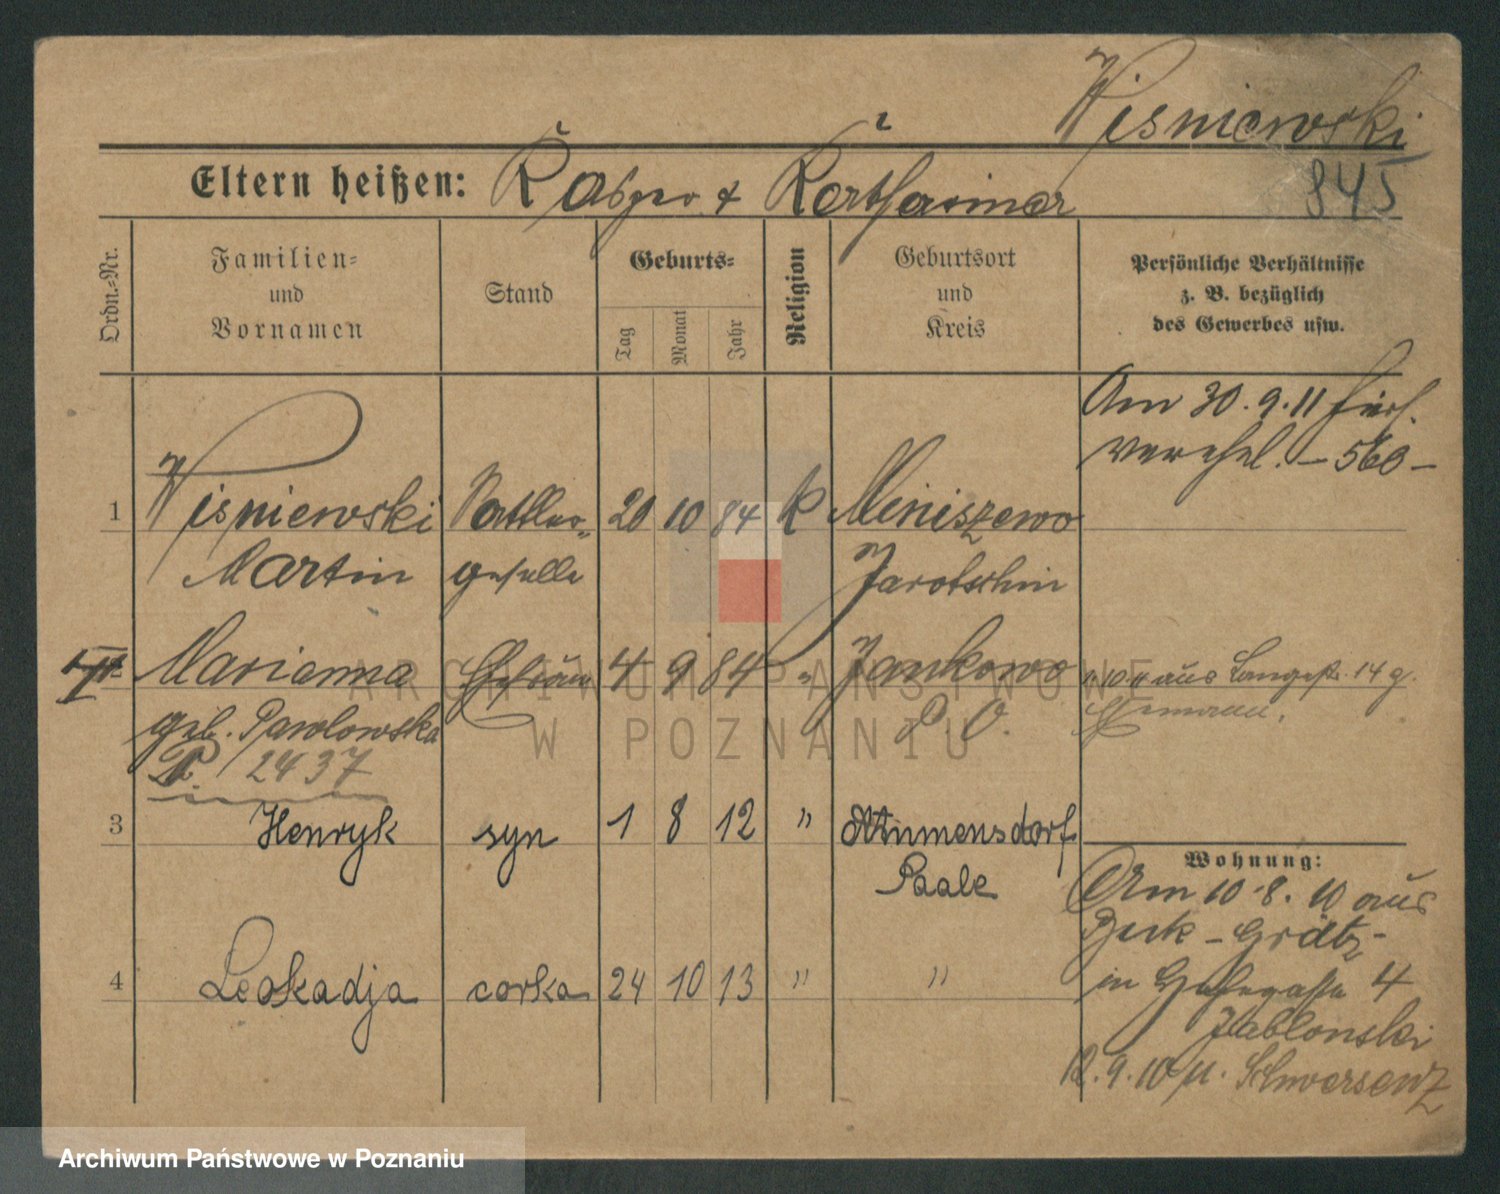 Wisniewski
Eltern heißen: Kasper & Katharina
845
Ordn.=Nr.
Familien=
und
Vornamen
Stand
Geburts=
Tag
Monat
Jahr
Religion
Geburtsort
und
Kreis
Persönliche Verhältnisse
z. B. bezüglich
des Gewerbes usw.
Am 30.9.11 hier
verehel. – 560 –
1 Wisniewski Sattler= 20 10 84 k Miniszewo
Martin geselle Jarotschin
Marianna Ehefrau 4 9 84 " Jankowo
aus Langestr. 14 g.
geb. Pawlowska P. O.
Ehemann.
P. 2437
3 Henryk syn 1 8 12 " Ammensdorf
Saale
4 Leokadja corka 24 10 13 " "
Wohnung:
Am 10.8.10 aus
Buk - Grätz-
in 4
Jablonski
12.9.10 n. Schwersenz
ARCHIWUM PAŃSTWOWE
W POZNANIU
Archiwum Państwowe w Poznaniu